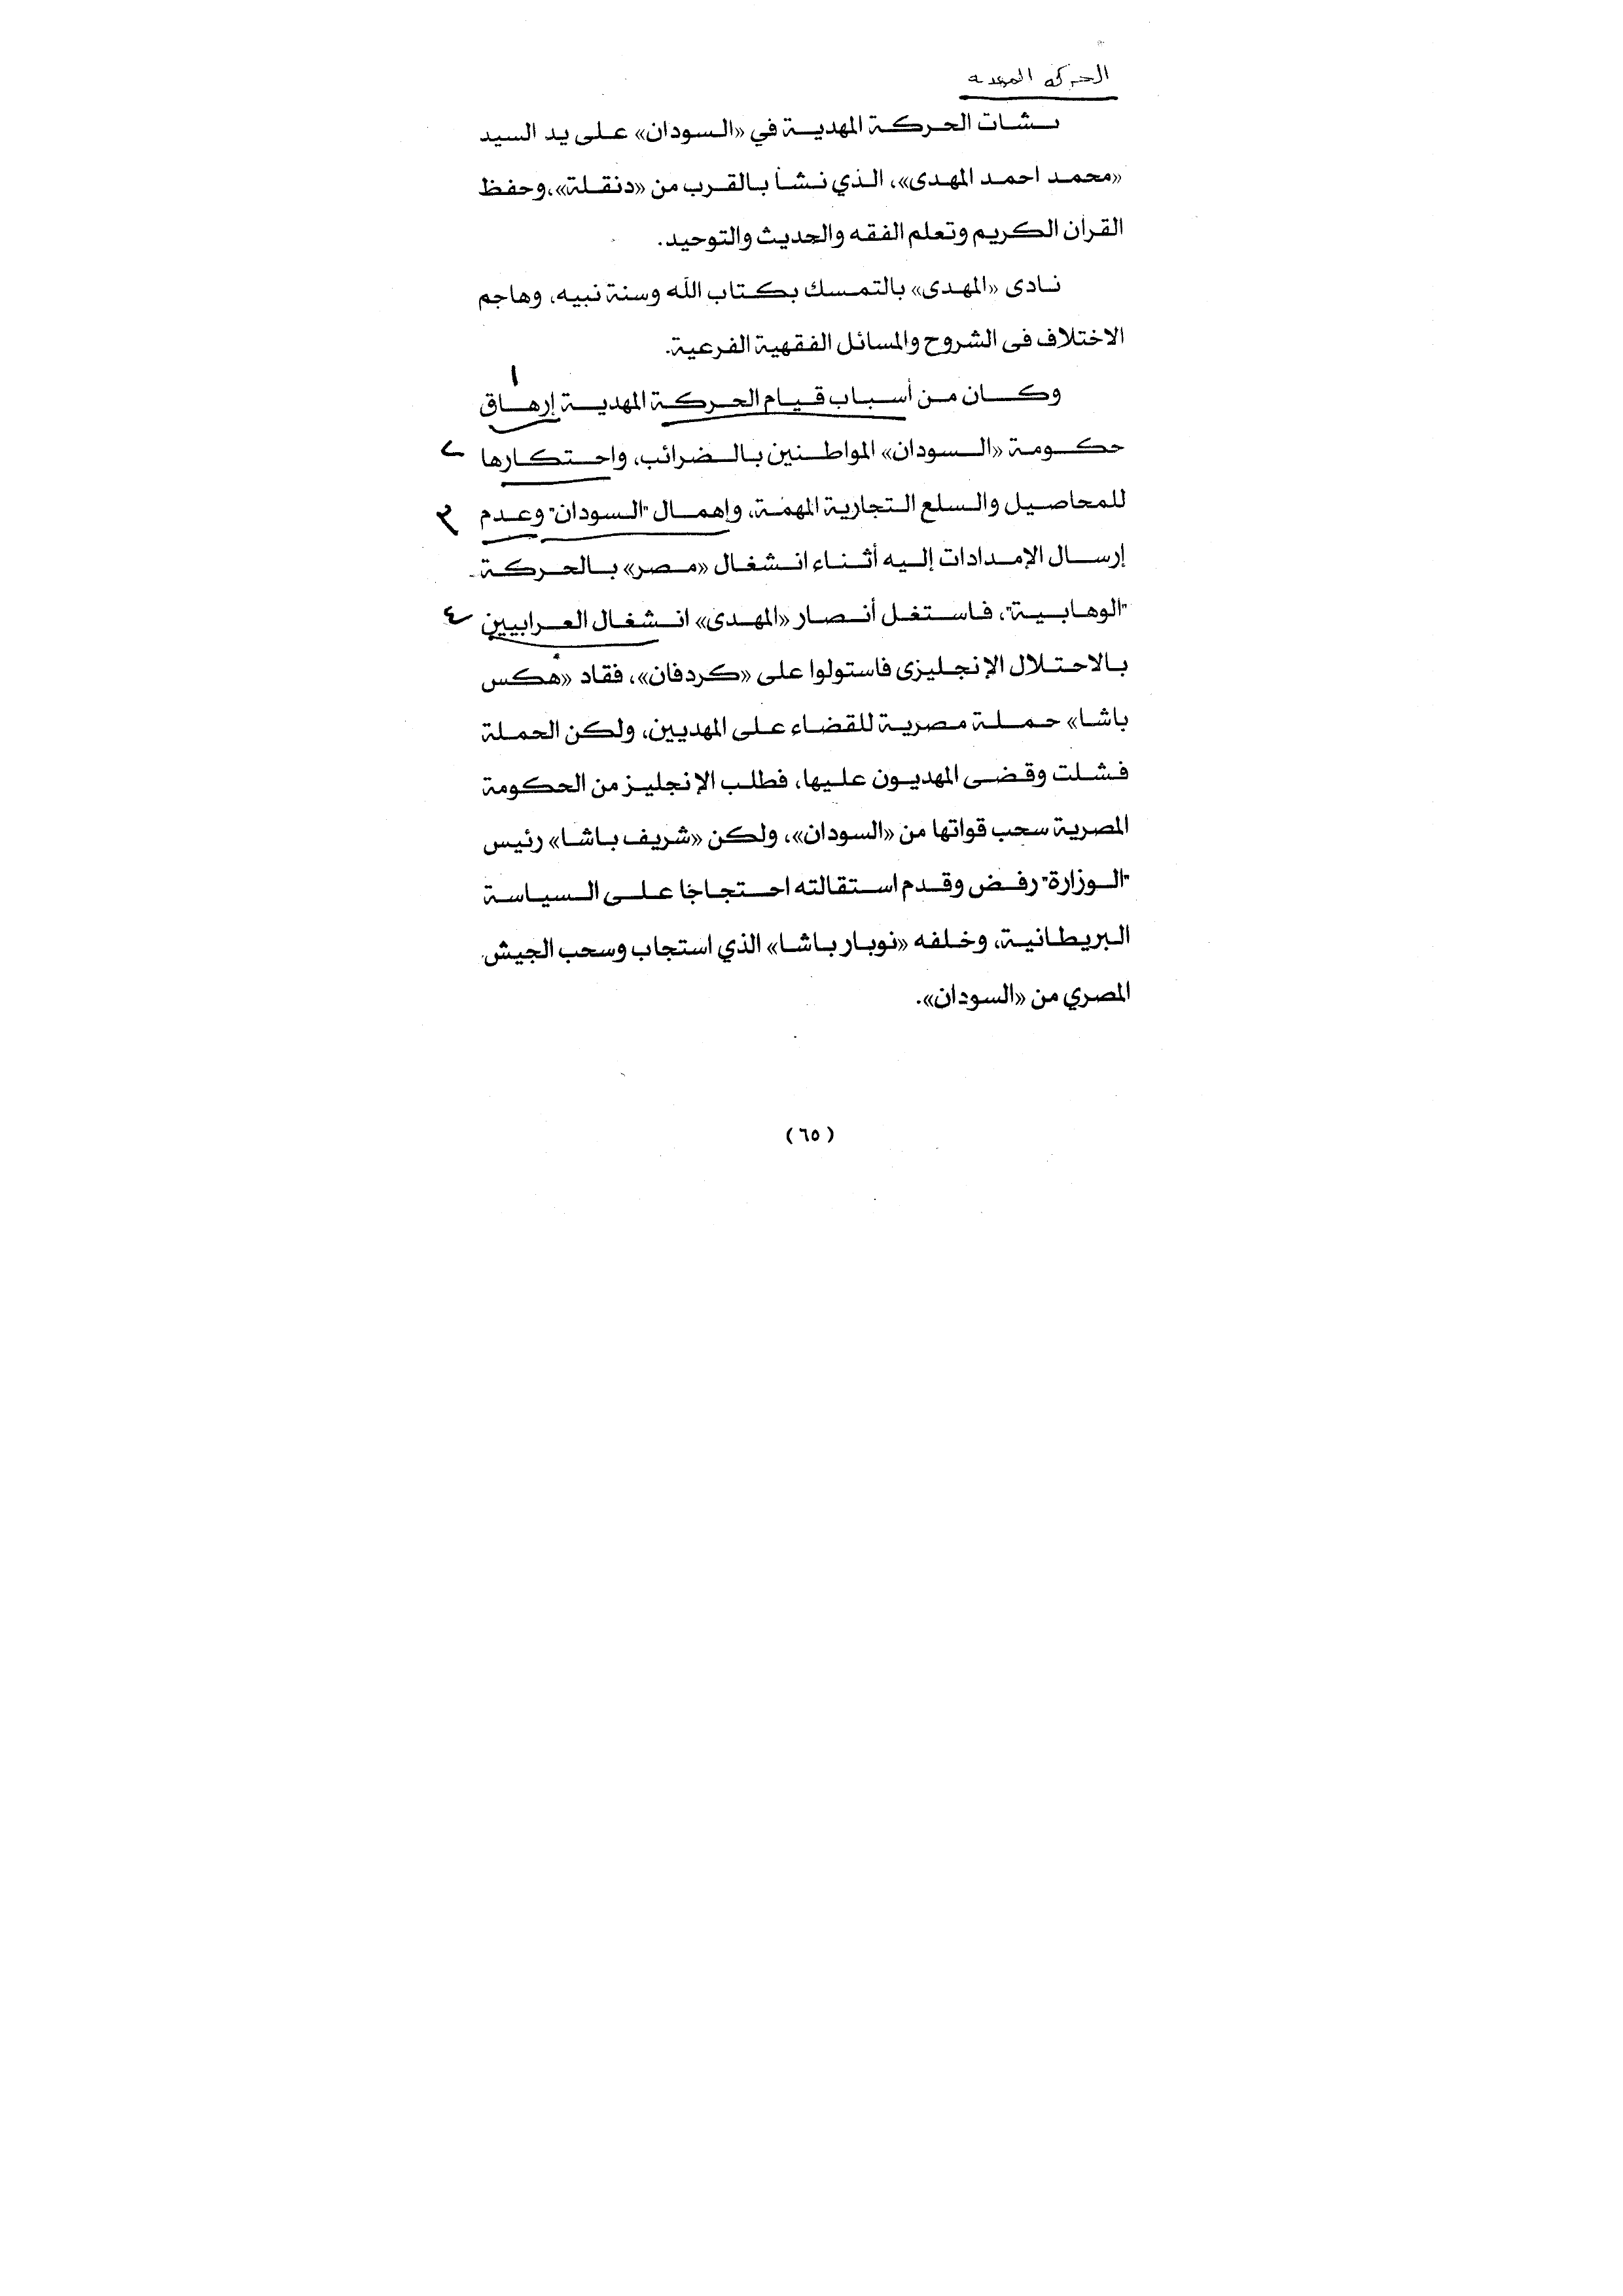 الحركة المهدية
نشات الحركة المهدية في «السودان» على يد السيد
«محمد احمد المهدى»، الذي نشأ بالقرب من «دنقلة»،وحفظ
القرآن الكريم وتعلم الفقه والحديث والتوحيد.
نادى «المهدى» بالتمسك بكتاب الله وسنة نبيه، وهاجم
الاختلاف فى الشروح والمسائل الفقهية الفرعية.
١
وكان من أسباب قيام الحركة المهدية إرهاق
حكومة «السودان» المواطنين بالضرائب، واحتكارها ٢
للمحاصيل والسلع التجارية المهمة، وإهمال "السودان" وعدم ٣
إرسال الإمدادات إليه أثناء انشغال «مصر» بالحركة
"الوهابية"، فاستغل أنصار «المهدى» انشغال العرابيين ٤
بالاحتلال الإنجليزى فاستولوا على «كردفان»، فقاد «هكس
باشا» حملة مصرية للقضاء على المهديين، ولكن الحملة
فشلت وقضى المهديون عليها، فطلب الإنجليز من الحكومة
المصرية سحب قواتها من «السودان»، ولكن «شريف باشا» رئيس
"الوزارة" رفض وقدم استقالته احتجاجا على السياسة
البريطانية، وخلفه «نوبار باشا» الذي استجاب وسحب الجيش
المصري من «السودان».
(٦٥)